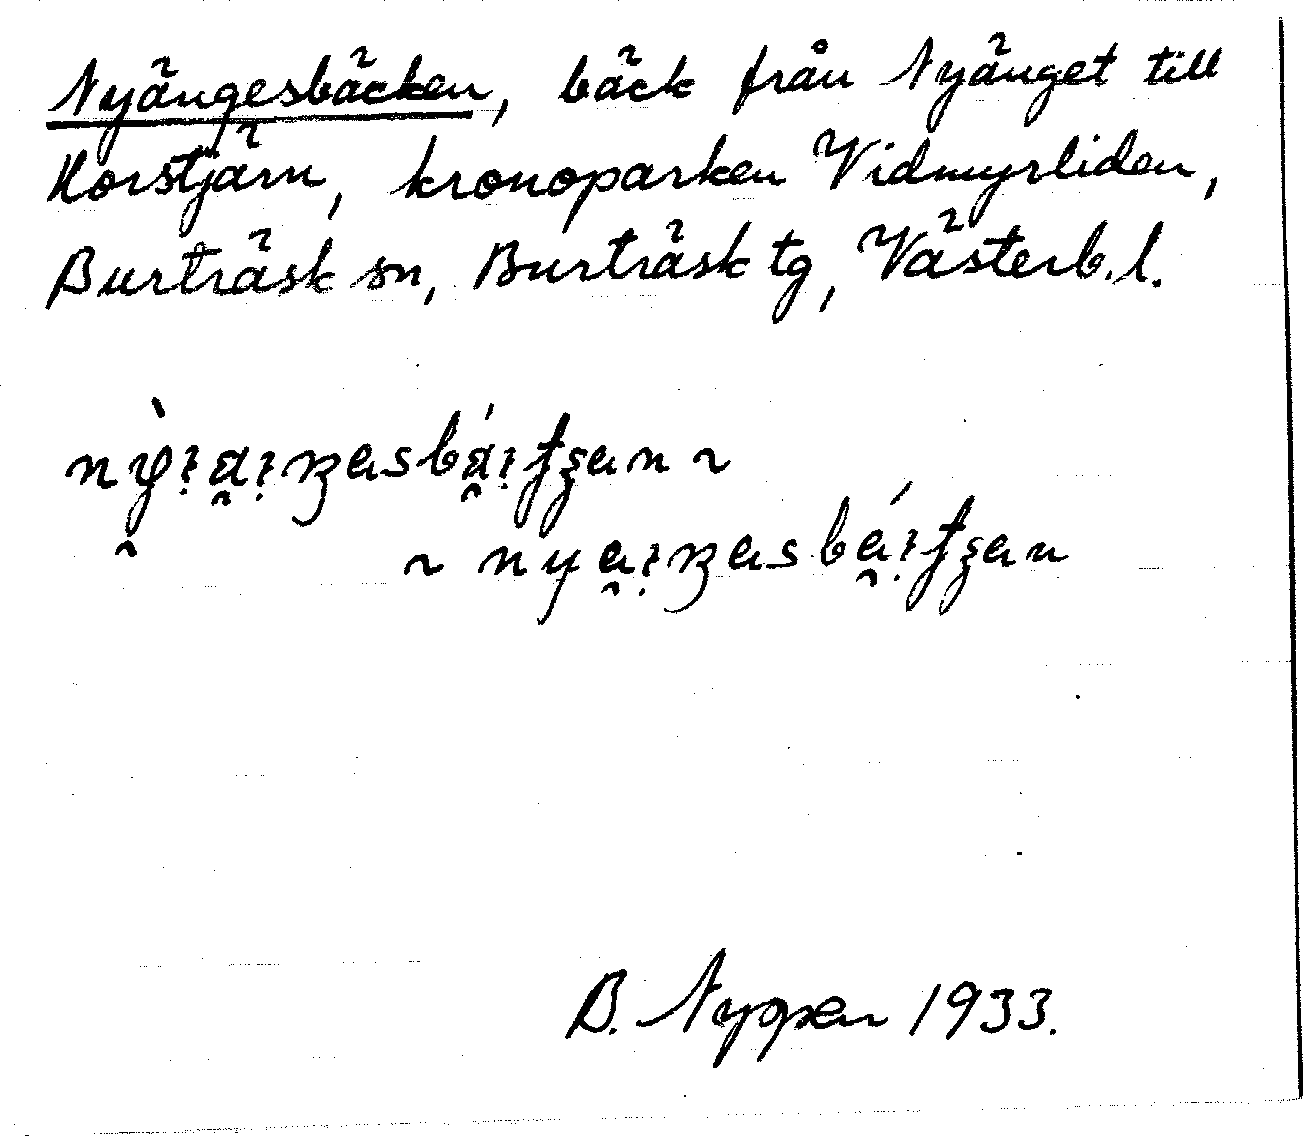 Nyängesbäcken, bäck från Nyänget till
Horstjärn, kronoparken Vidmyrliden,
Burträsk sn, Burträsk tg, Västerb. l.
B. 1933.